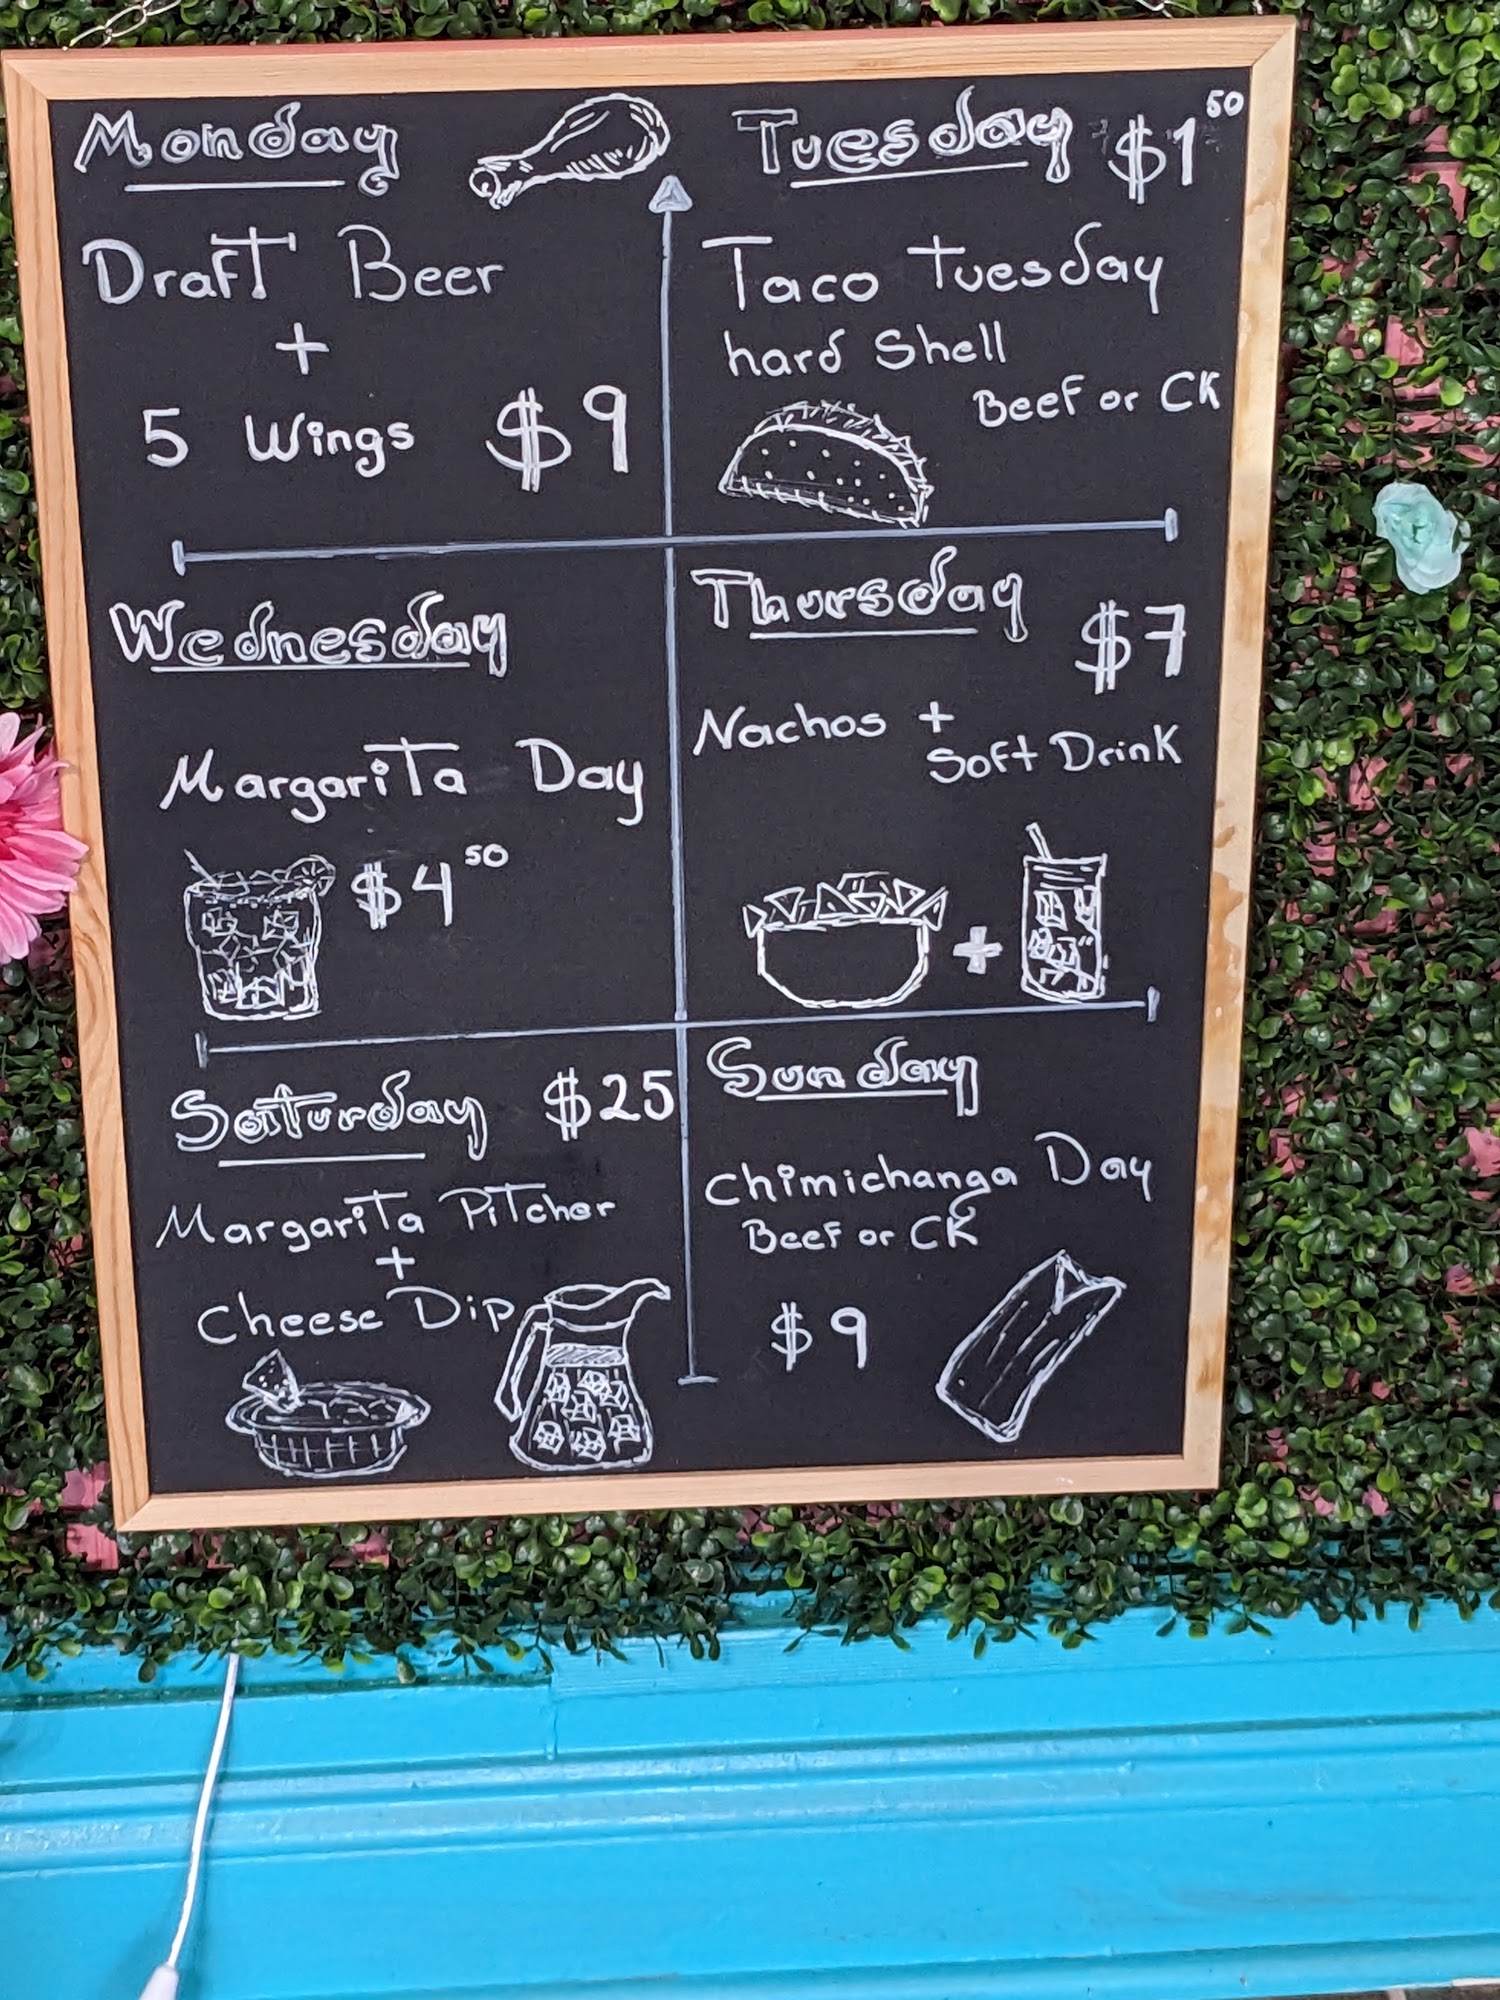 Monday
Draft Beer
+
5 Wings $9
Tuesday $1 50
Taco Tuesday
hard Shell
Beef or CK
Wednesday
Margarita Day
$4 50
Thursday
$7
Nachos +
Soft Drink
+
Saturday $25
Margarita Pitcher
+
Cheese Dip
Sunday
Chimichanga Day
Beef or CK
$9